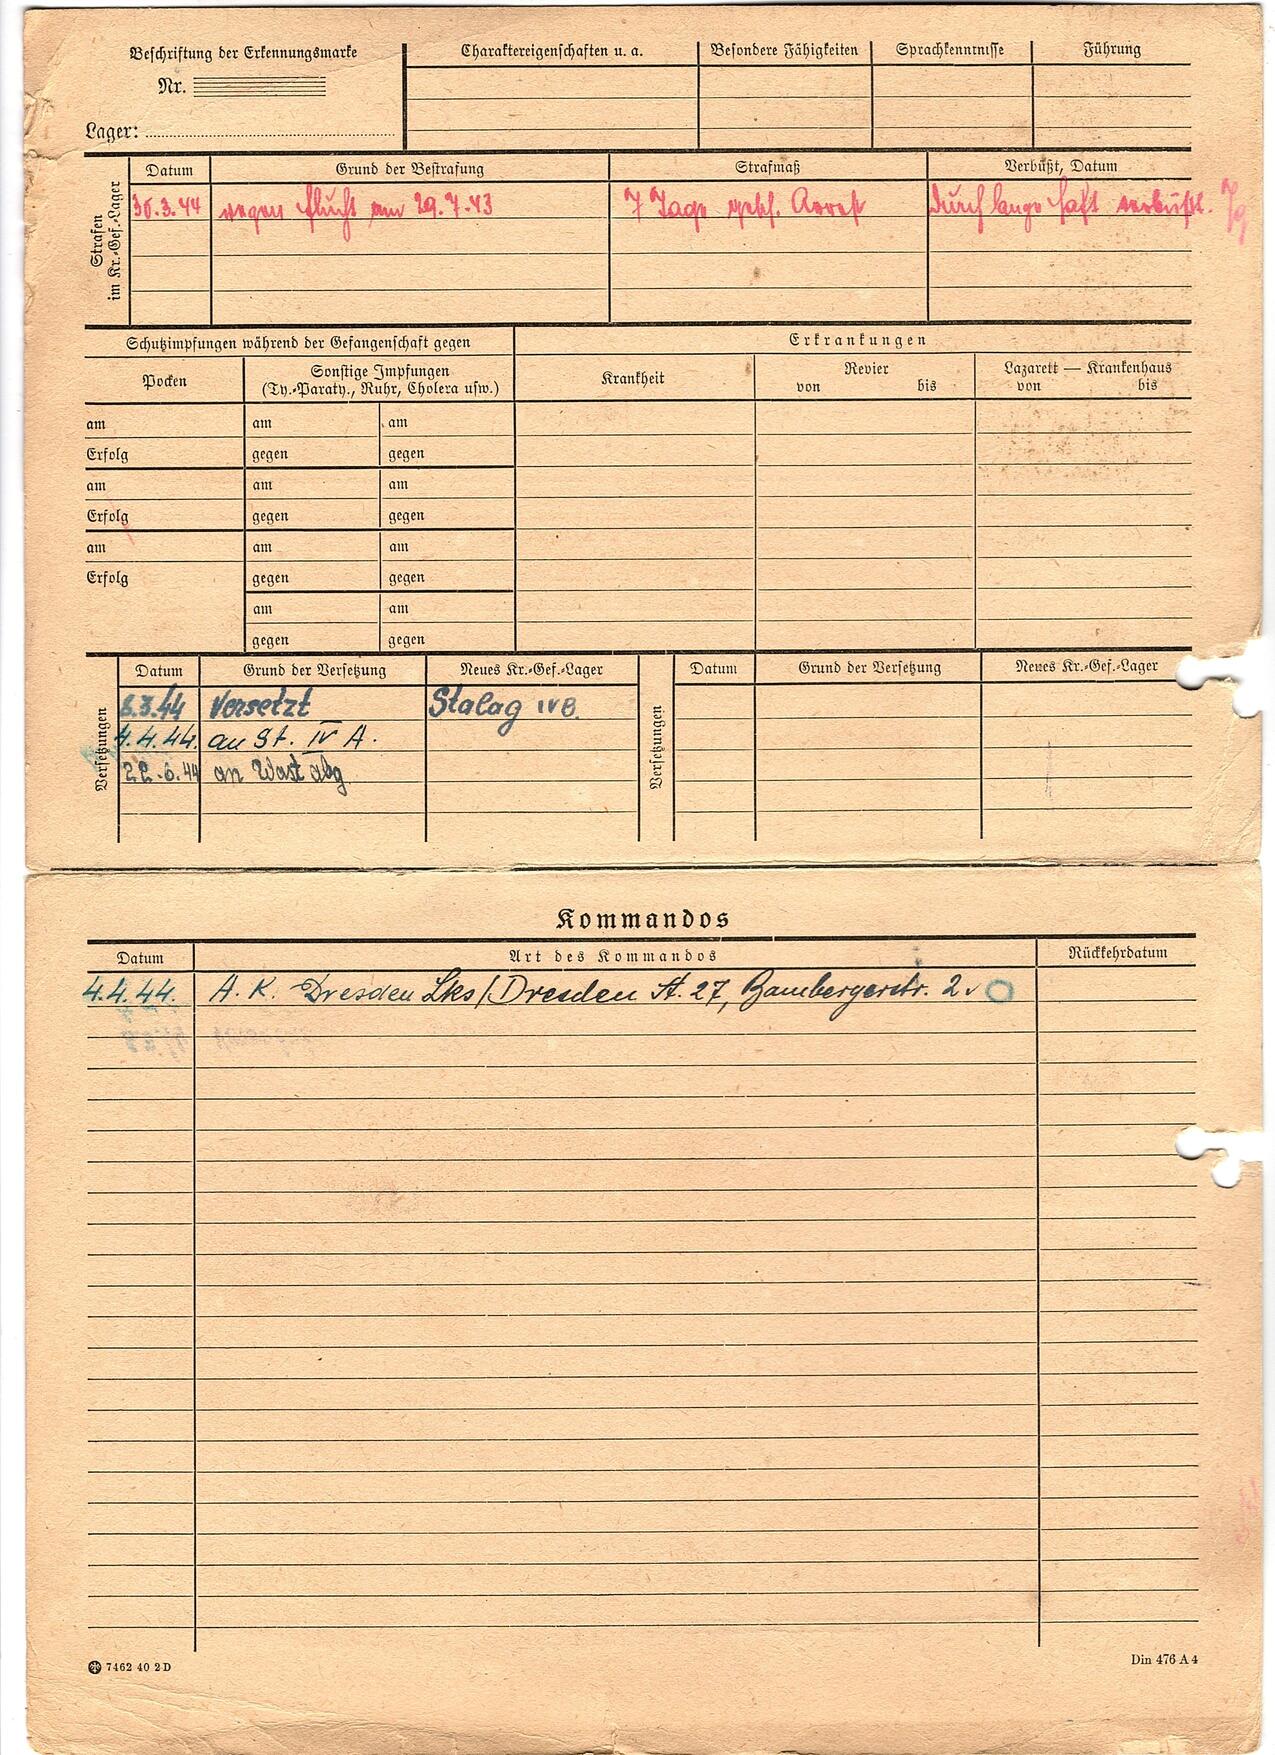 Beschriftung der Erkennungsmarke
Nr.
Lager:
Charaktereigenschaften u. a. Besondere Fähigkeiten Sprachkenntnisse Führung
Strafen im Kr.-Gef.-Lager
Datum Grund der Bestrafung Strafmaß Verbüßt, Datum
30.3.44 wegen Flucht am 29.7.43 7 Tage gesch. Arrest durch lange Haft verbüßt.
Schutzimpfungen während der Gefangenschaft gegen Erkrankungen
Pocken Sonstige Impfungen (Ty.-Paraty., Ruhr, Cholera usw.) Krankheit Revier von bis Lazarett — Krankenhaus von bis
am am am
Erfolg gegen gegen
am am am
Erfolg gegen gegen
am am am
Erfolg gegen gegen
am am
gegen gegen
Versetzungen
Datum Grund der Versetzung Neues Kr.-Gef.-Lager
6.3.44 versetzt Stalag IVB.
4.4.44. an St. IV A.
22.6.44 an Wast abg
Versetzungen
Datum Grund der Versetzung Neues Kr.-Gef.-Lager
Kommandos
Datum Art des Kommandos Rückkehrdatum
4.4.44. A. K. Dresden Lks/Dresden A. 27, Bambergerstr. 2
7462 40 2 D Din 476 A 4